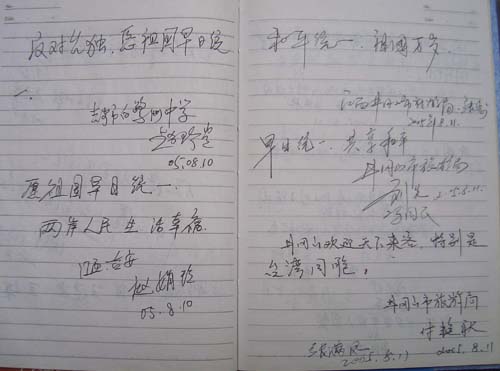 反对台独，愿祖国早日统
一.
中学
05.08.10
愿祖国早日统一.
两岸人民生活幸福.
江西 吉安
赵娟玲
05.8.10
和平统一. 祖国万岁.
江西井冈山市旅游局
2005年8.11.
早日统一 共享和平
井冈山市旅游局
2005.8.11.
井冈山欢迎天下来客. 特别是
台湾同胞，
井冈山市旅游局
2005.8.11
张满凤
2005.8.11